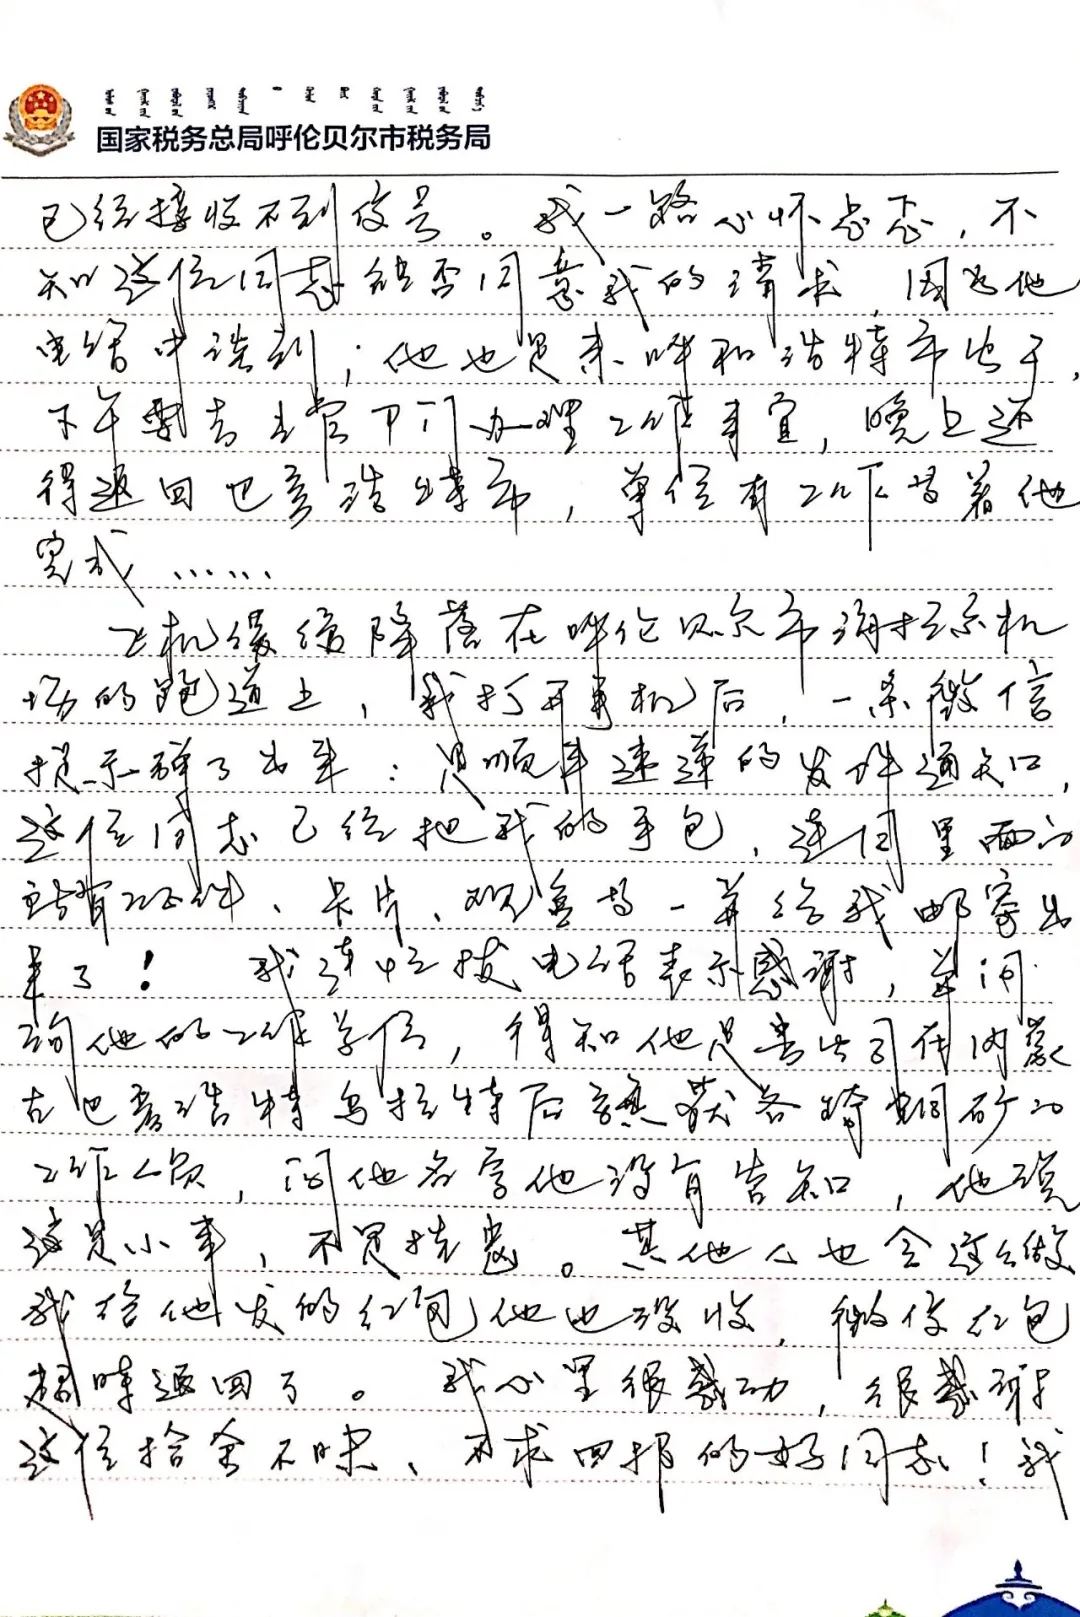 国家税务总局呼伦贝尔市税务局
已经接收不到信号。我一路心怀忐忑，不
知这位同志能否同意我的请求，因为他
电话中谈到；他也是来呼和浩特市出了，
下午要去主管部门办理工作事宜，晚上还
得返回巴彦浩特市，单位有工作等着他
完成……
飞机缓缓降落在呼伦贝尔市海拉尔机
场的跑道上，我打开手机后，一条微信
提示弹了出来：是顺丰速运的发件通知，
这位同志已经把我的手包，连同里面的
所有证件、卡片、现金等一并给我邮寄出
来了！我连忙拨电话表示感谢，并问
询他的工作单位，得知他是贵公司在内蒙
古巴彦浩特乌拉特后旗获各琦铜矿的
工作人员，问他名字他没有告知，他说
这是小事，不足挂齿。其他人也会这么做
我给他发的红包他也没收，微信红包
超时退回了。我心里很感动，很感谢
这位拾金不昧、不求回报的好同志！我